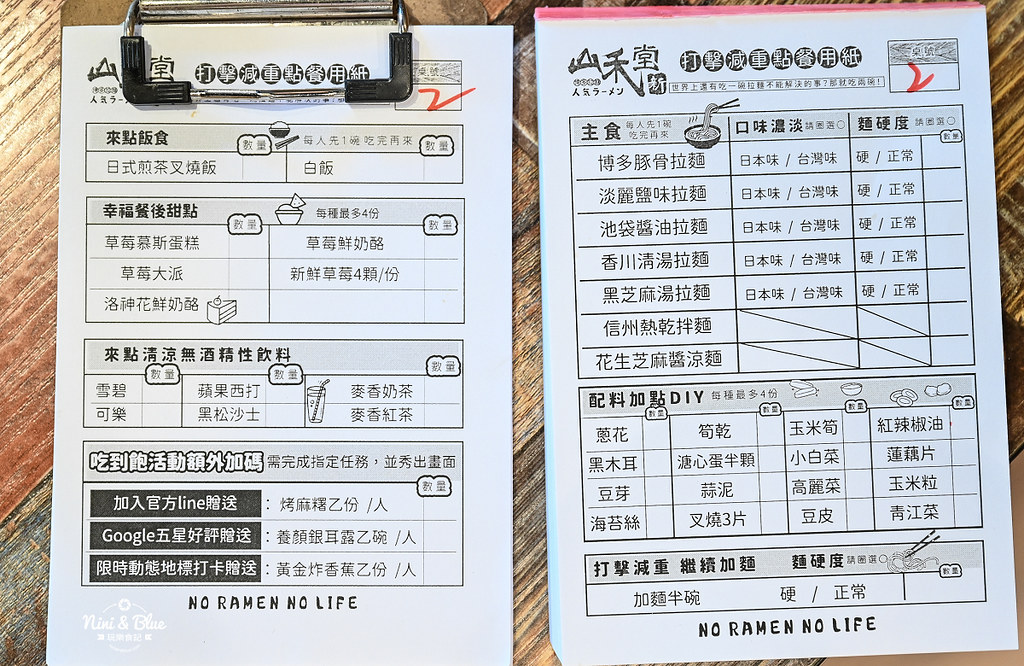 山 堂
人気ラーメン
打擊減重點餐用紙
2
來點飯食 數量 每人先1碗 吃完再來 數量
日式煎茶叉燒飯 白飯
幸福餐後甜點 數量 每種最多4份 數量
草莓慕斯蛋糕 草莓鮮奶酪
草莓大派 新鮮草莓4顆/份
洛神花鮮奶酪
來點清涼無酒精性飲料
數量 數量 數量
雪碧 蘋果西打 麥香奶茶
可樂 黑松沙士 麥香紅茶
吃到飽活動額外加碼 需完成指定任務，並秀出畫面
數量
加入官方line贈送 : 烤麻糬乙份 /人
Google五星好評贈送 : 養顏銀耳露乙碗 /人
限時動態地標打卡贈送 : 黃金炸香蕉乙份 /人
NO RAMEN NO LIFE
Nini & Blue
山禾堂
人気ラーメン
打擊減重點餐用紙
世界上還有吃一碗拉麵不能解決的事?那就吃兩碗!
桌號
2
主食 每人先1碗 吃完再來 口味濃淡 請圈選○ 麵硬度 請圈選○
數量
博多豚骨拉麵 日本味 / 台灣味 硬 / 正常
淡麗鹽味拉麵 日本味 / 台灣味 硬 / 正常
池袋醬油拉麵 日本味 / 台灣味 硬 / 正常
香川清湯拉麵 日本味 / 台灣味 硬 / 正常
黑芝麻湯拉麵 日本味 / 台灣味 硬 / 正常
信州熱乾拌麵
花生芝麻醬涼麵
配料加點DIY 每種最多4份
數量 數量 數量 數量
蔥花 筍乾 玉米筍 紅辣椒油
黑木耳 溏心蛋半顆 小白菜 蓮藕片
豆芽 蒜泥 高麗菜 玉米粒
海苔絲 叉燒3片 豆皮 青江菜
打擊減重 繼續加麵 麵硬度 請圈選○
數量
加麵半碗 硬 / 正常
NO RAMEN NO LIFE